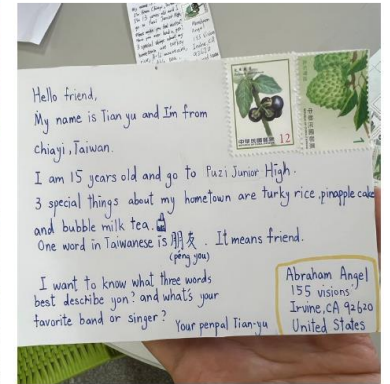 Hello friend,
My name is Tian yu and I'm from
chiayi, Taiwan.
I am 15 years old and go to Puzi Junior High.
3 special things about my hometown are turky rice, pinapple cake
and bubble milk tea.
One word in Taiwanese is 朋友. It means friend.
(péng you)
I want to know what three words
best describe you? and what's your
favorite band or singer?
Your penpal Tian-yu
Abraham Angel
155 visions
Irvine, CA 92620
United States
中華民國郵票
12